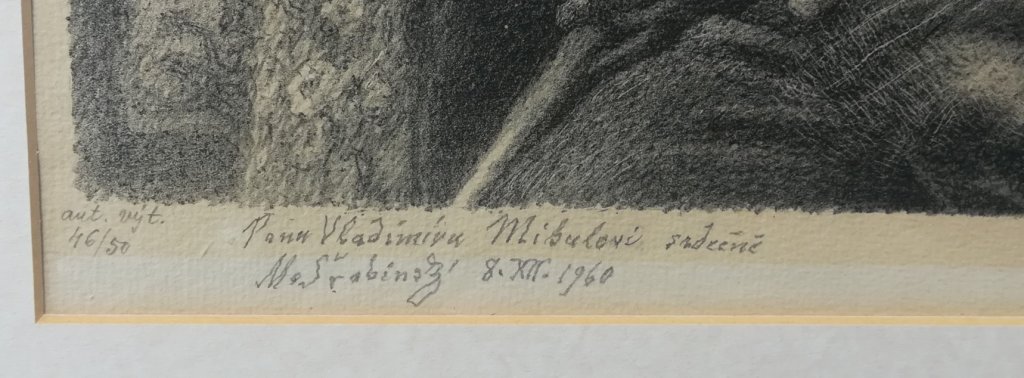 aut. výt.
46/50
Panu Vladimíru Mikulovi srdečně
MaxŠvabinský 8. XII. 1960